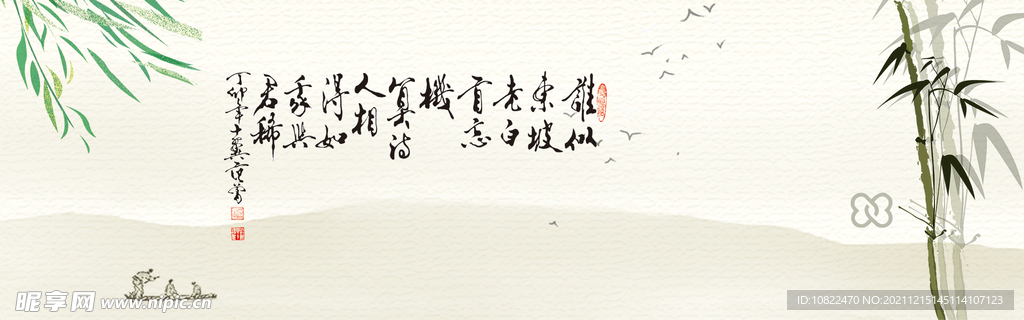 誰似
東坡
老白
首忘
機
算诗
人相
得如
我與
君稀
丁卯年十翼范曾
昵享网 www.nipic.cn
ID:10822470 NO:20211215145114107123